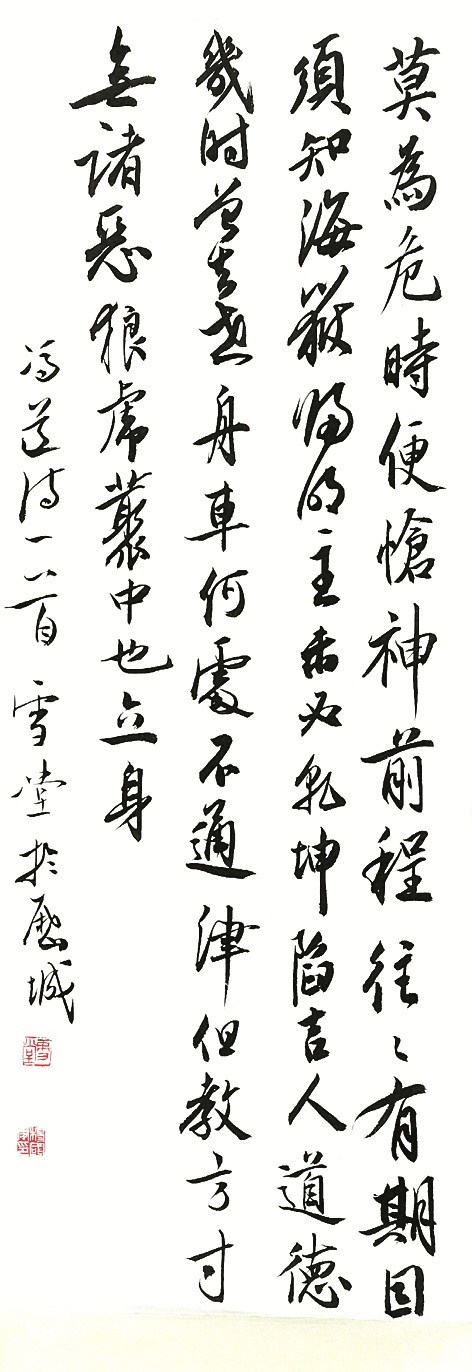 莫為危時便愴神前程往〻有期因
須知海嶽歸明主未必乾坤陷吉人道德
幾时曾去世舟車何處不通津但教方寸
無諸惡狼虎叢中也立身
馮道诗一首 雪堂於歷城